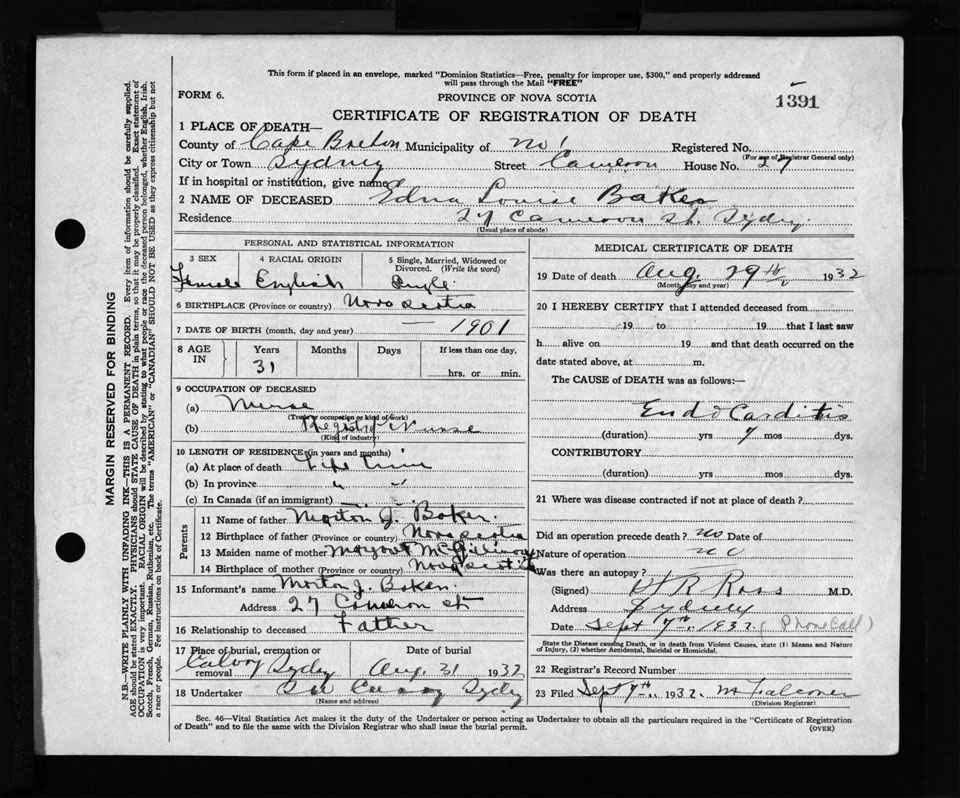 This form if placed in an envelope, marked "Dominion Statistics—Free, penalty for improper use, $300," and properly addressed
will pass through the Mail "FREE"
FORM 6.
PROVINCE OF NOVA SCOTIA
1391
CERTIFICATE OF REGISTRATION OF DEATH
1 PLACE OF DEATH—
County of Cape Breton Municipality of Registered No.
(For use of Registrar General only)
City or Town Sydney Street Cameron House No. 27
If in hospital or institution, give name
2 NAME OF DECEASED Edna Louise Baker
Residence 27 Cameron St. Sydney
(Usual place of abode)
PERSONAL AND STATISTICAL INFORMATION
3 SEX 4 RACIAL ORIGIN 5 Single, Married, Widowed or
Divorced. (Write the word)
Female English Single
6 BIRTHPLACE (Province or country) Nova Scotia
7 DATE OF BIRTH (month, day and year) — 1901
8 AGE IN Years Months Days If less than one day,
31 hrs. or min.
9 OCCUPATION OF DECEASED
(a) Nurse
(Trade, occupation or kind of work)
(b) Regist'd Nurse
(Kind of industry)
10 LENGTH OF RESIDENCE (in years and months)
(a) At place of death Life time
(b) In province " "
(c) In Canada (if an immigrant)
Parents
11 Name of father Morton J. Baker.
12 Birthplace of father (Province or country) Nova Scotia
13 Maiden name of mother Margaret McGillivray
14 Birthplace of mother (Province or country) Nova Scotia
15 Informant's name Morton J. Baker
Address 27 Cameron St
16 Relationship to deceased Father
17 Place of burial, cremation or Date of burial
removal Calvary Sydney Aug. 31 1932
18 Undertaker Sydney
(Name and address)
MEDICAL CERTIFICATE OF DEATH
19 Date of death Aug. 29th 1932
(Month, day and year)
20 I HEREBY CERTIFY that I attended deceased from
19 to 19 that I last saw
h alive on 19 and that death occurred on the
date stated above, at m.
The CAUSE of DEATH was as follows:—
Endo Carditis
(duration) yrs 7 mos dys.
CONTRIBUTORY
(duration) yrs mos dys.
21 Where was disease contracted if not at place of death?
Did an operation precede death? no Date of
Nature of operation no
Was there an autopsy?
(Signed) Ross M.D.
Address Sydney
Date Sept 7th 1932 (Phone Call)
State the Disease causing Death, or in death from Violent Causes, state (1) Means and Nature
of Injury, (2) whether Accidental, Suicidal or Homicidal.
22 Registrar's Record Number
23 Filed Sept 7th 1932. M Falconer
(Division Registrar)
Sec. 46—Vital Statistics Act makes it the duty of the Undertaker or person acting as Undertaker to obtain all the particulars required in the "Certificate of Registration
of Death" and to file the same with the Division Registrar who shall issue the burial permit. (OVER)
MARGIN RESERVED FOR BINDING
N.B.—WRITE PLAINLY WITH UNFADING INK—THIS IS A PERMANENT RECORD. Every item of information should be carefully supplied.
AGE should be stated EXACTLY. PHYSICIANS should STATE CAUSE OF DEATH in plain terms, so that it may be properly classified. Exact statement of
OCCUPATION is very important. RACIAL ORIGIN will be described by stating to what people or race the deceased person belonged, whether English, Irish,
Scotch, French, German, Russian, Ruthenian, etc. The terms "AMERICAN" or "CANADIAN" SHOULD NOT BE USED as they express citizenship but not
a race or people. Fee instructions on back of Certificate.